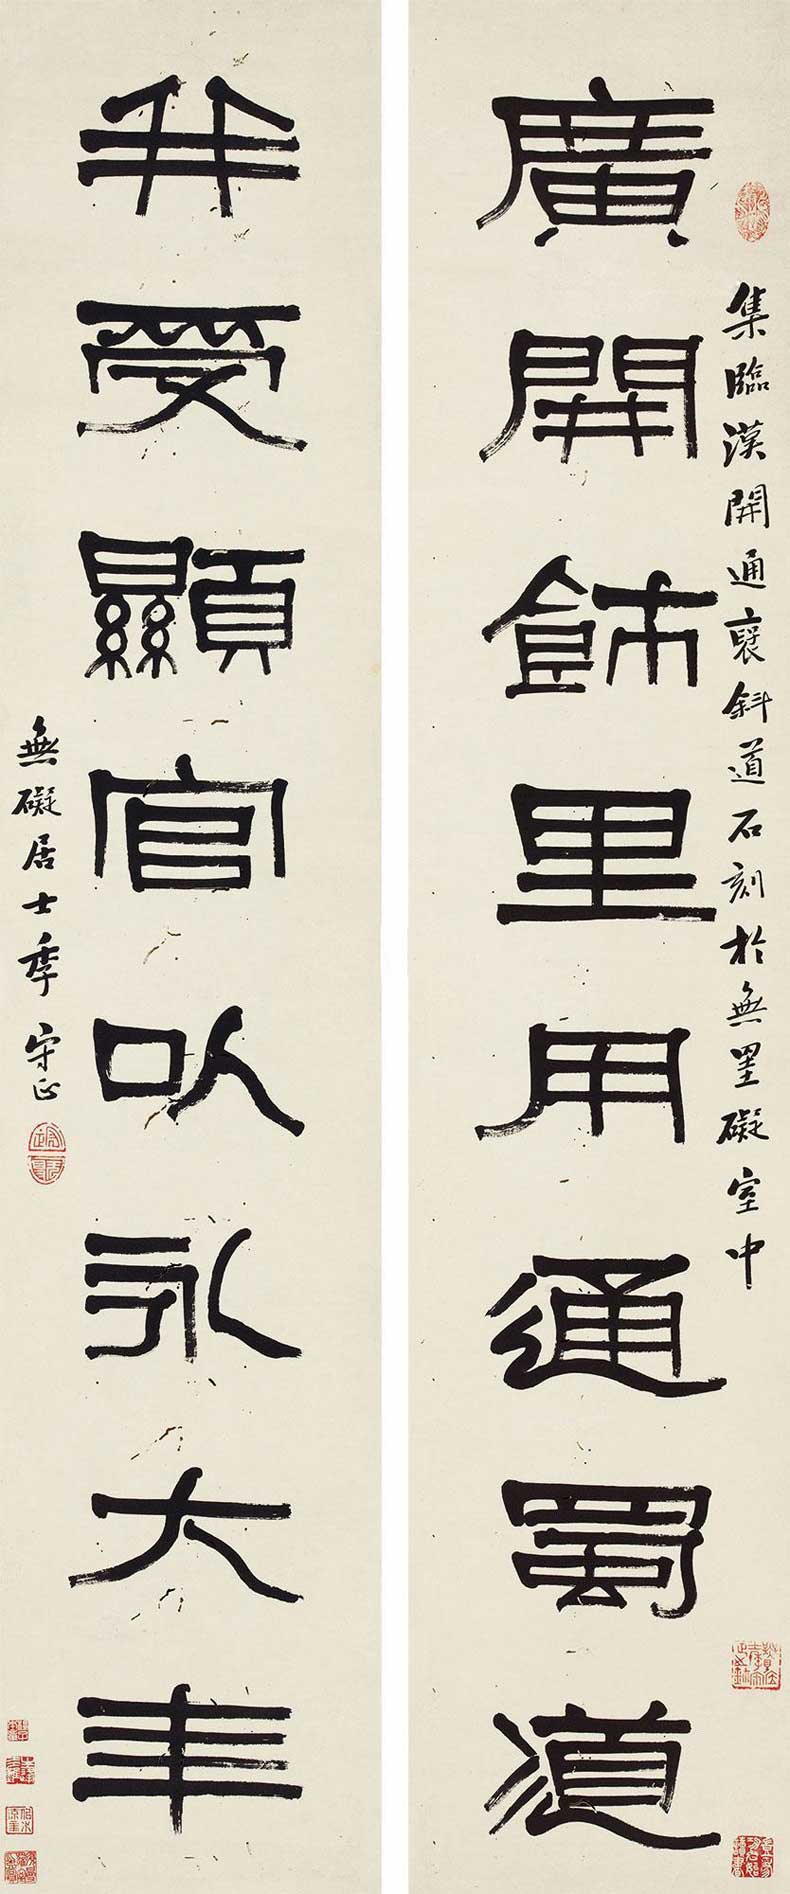 廣開飾里用通蜀道
集臨漢開通褒斜道石刻於無罣礙室中
并受顯官以永大年
無礙居士季守正